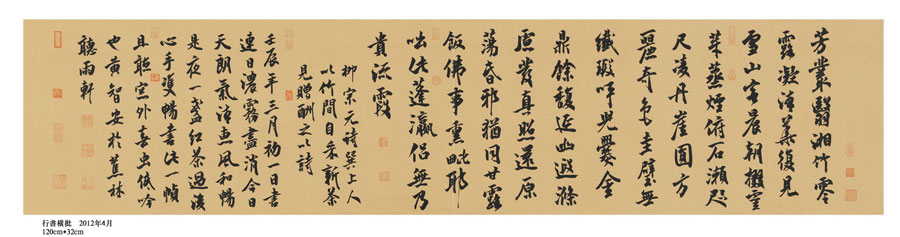 芳叢翳湘竹零
露凝清華復見
雪山客晨朝掇靈
芽蒸煙俯石瀨咫
尺凌丹崖圓方
麗奇色圭璧無
纖瑕呼兒爨金
鼎餘馥延幽遐滌
慮發真照還原
蕩昏邪猶同甘露
飯佛事熏毗耶
咄此蓬瀛侶無乃
貴流霞
柳宗元詩巽上人
以竹間自采新茶
見贈酬之以詩
壬辰年三月初一日書
連日濃霧盡消今日
天朗氣清惠風和暢
是夜一盞紅茶過後
心手雙暢書此一幀
且聽窗外喜虫低吟
也黃智安於蕉林
聽雨軒
行書橫批 2012年4月
120cm*32cm